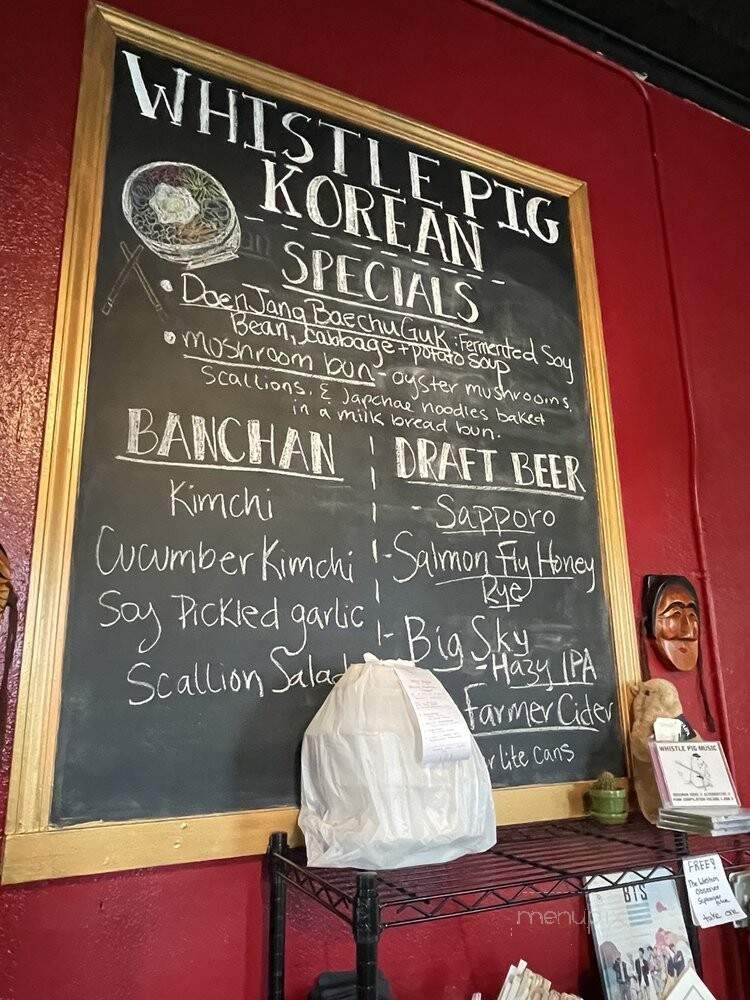 WHISTLE PIG
KOREAN
SPECIALS
• DaenJang BaechuGuk: Fermented Soy
Bean, cabbage + potato soup
• mushroom bun - oyster mushrooms,
Scallions, & Japchae noodles baked
in a milk bread bun.
BANCHAN
Kimchi
Cucumber Kimchi
Soy Pickled garlic
Scallion Salad
DRAFT BEER
- Sapporo
- Salmon Fly Honey
Rye
- Big Sky
- Hazy IPA
Farmer Cider
lite cans
WHISTLE PIG MUSIC
FREE!
The Western
Observer
take one
BTS
menu